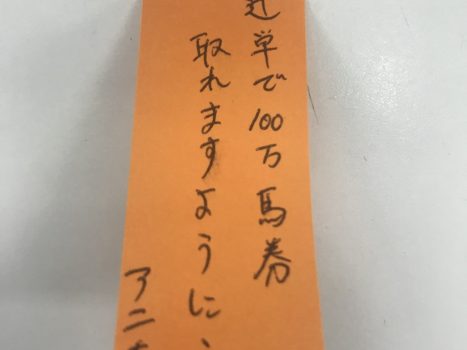 単で100万馬券
取れますように
アニ